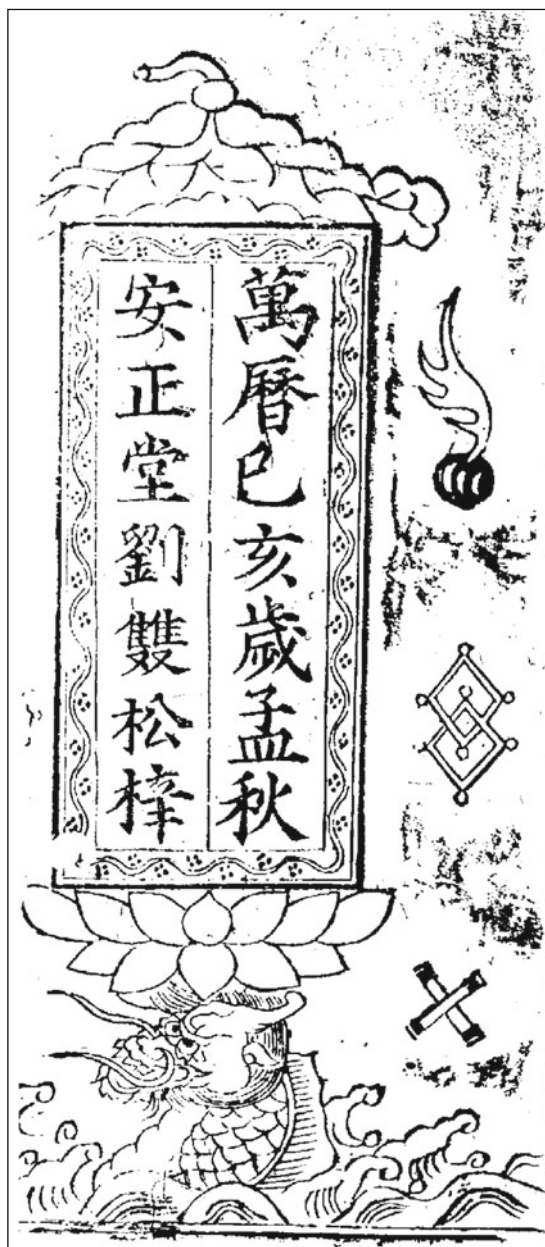 萬曆己亥歲孟秋
安正堂劉雙松梓